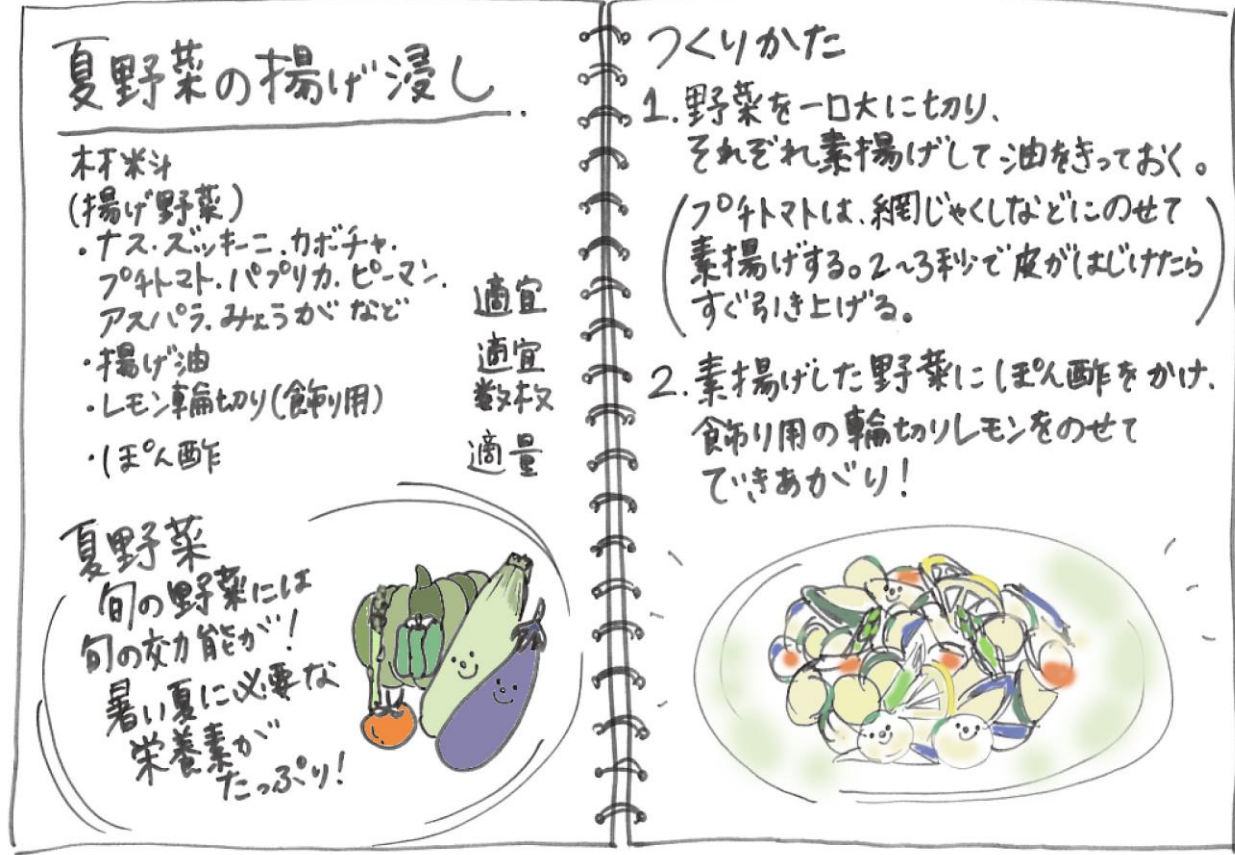 夏野菜の揚げ浸し
材料
(揚げ野菜)
・ナス・ズッキーニ・カボチャ・
プチトマト・パプリカ・ピーマン、
アスパラ、みょうが など 適宜
・揚げ油 適宜
・レモン輪切り(飾り用) 数枚
・ぽん酢 適量
夏野菜
旬の野菜には
旬の効能が!
暑い夏に必要な
栄養素が
たっぷり!
つくりかた
1.野菜を一口大に切り、
それぞれ素揚げして油をきっておく。
(プチトマトは、網じゃくしなどにのせて
素揚げする。2~3秒で皮がはじけたら
すぐ引き上げる。)
2.素揚げした野菜にぽん酢をかけ、
飾り用の輪切りレモンをのせて
できあがり!